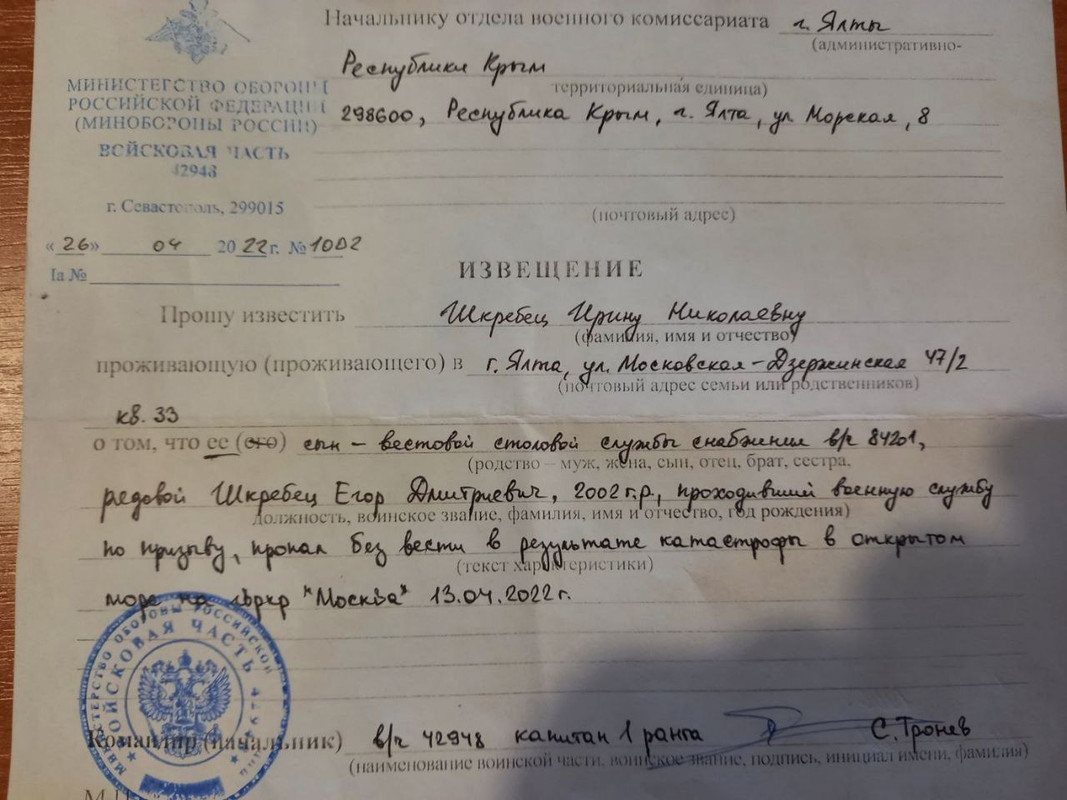 Начальнику отдела военного комиссариата г. Ялты
(административно-
Республики Крым
территориальная единица)
298600, Республика Крым, г. Ялта, ул Морская, 8
(почтовый адрес)
МИНИСТЕРСТВО ОБОРОНЫ
РОССИЙСКОЙ ФЕДЕРАЦИИ
(МИНОБОРОНЫ РОССИИ)
ВОЙСКОВАЯ ЧАСТЬ
42948
г. Севастополь, 299015
«26» 04 2022 г. № 1002
На №
ИЗВЕЩЕНИЕ
Прошу известить Шкребец Ирину Николаевну
(фамилия, имя и отчество)
проживающую (проживающего) в г. Ялта, ул. Московская-Дзержинская 47/2
(почтовый адрес семьи или родственников)
кв. 33
о том, что ее (его) сын – вестовой столовой службы снабжения в/ч 84201,
(родство – муж, жена, сын, отец, брат, сестра,
рядовой Шкребец Егор Дмитриевич, 2002 г.р., проходивший военную службу
должность, воинское звание, фамилия, имя и отчество, год рождения)
по призыву, пропал без вести в результате катастрофы в открытом
(текст характеристики)
море на гвркр "Москва" 13.04.2022 г.
МИНИСТЕРСТВО ОБОРОНЫ РОССИЙСКОЙ
ВОЙСКОВАЯ ЧАСТЬ
Командир (начальник) в/ч 42948 капитан 1 ранга С. Тронев
(наименование воинской части, воинское звание, подпись, инициал имени, фамилия)